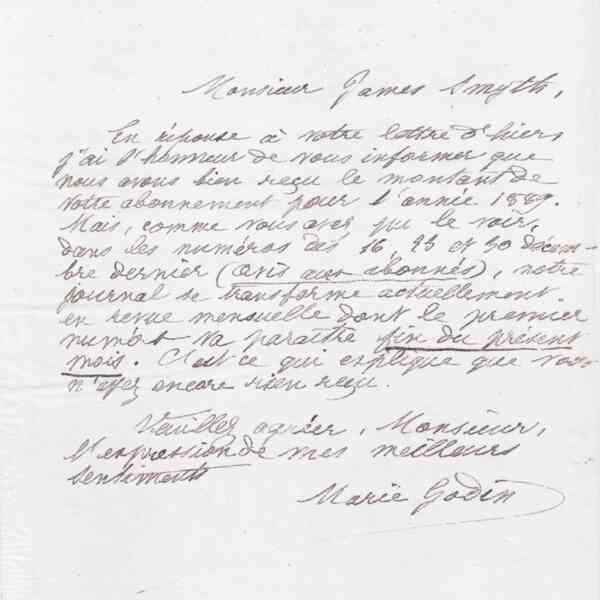 Monsieur James Smyth,
En réponse à votre lettre d'hier,
j'ai l'honneur de vous informer que
nous avons bien reçu le montant de
votre abonnement pour l'année 1889.
Mais, comme vous avez pu le voir,
dans les numéros des 16, 23 et 30 décem-
bre dernier (avis aux abonnés), notre
journal se transforme actuellement
en revue mensuelle dont le premier
numéro va paraître fin du présent
mois. C'est ce qui explique que vous
n'ayez encore rien reçu.
Veuillez agréer, Monsieur,
l'expression de mes meilleurs
sentiments
Marie Godin